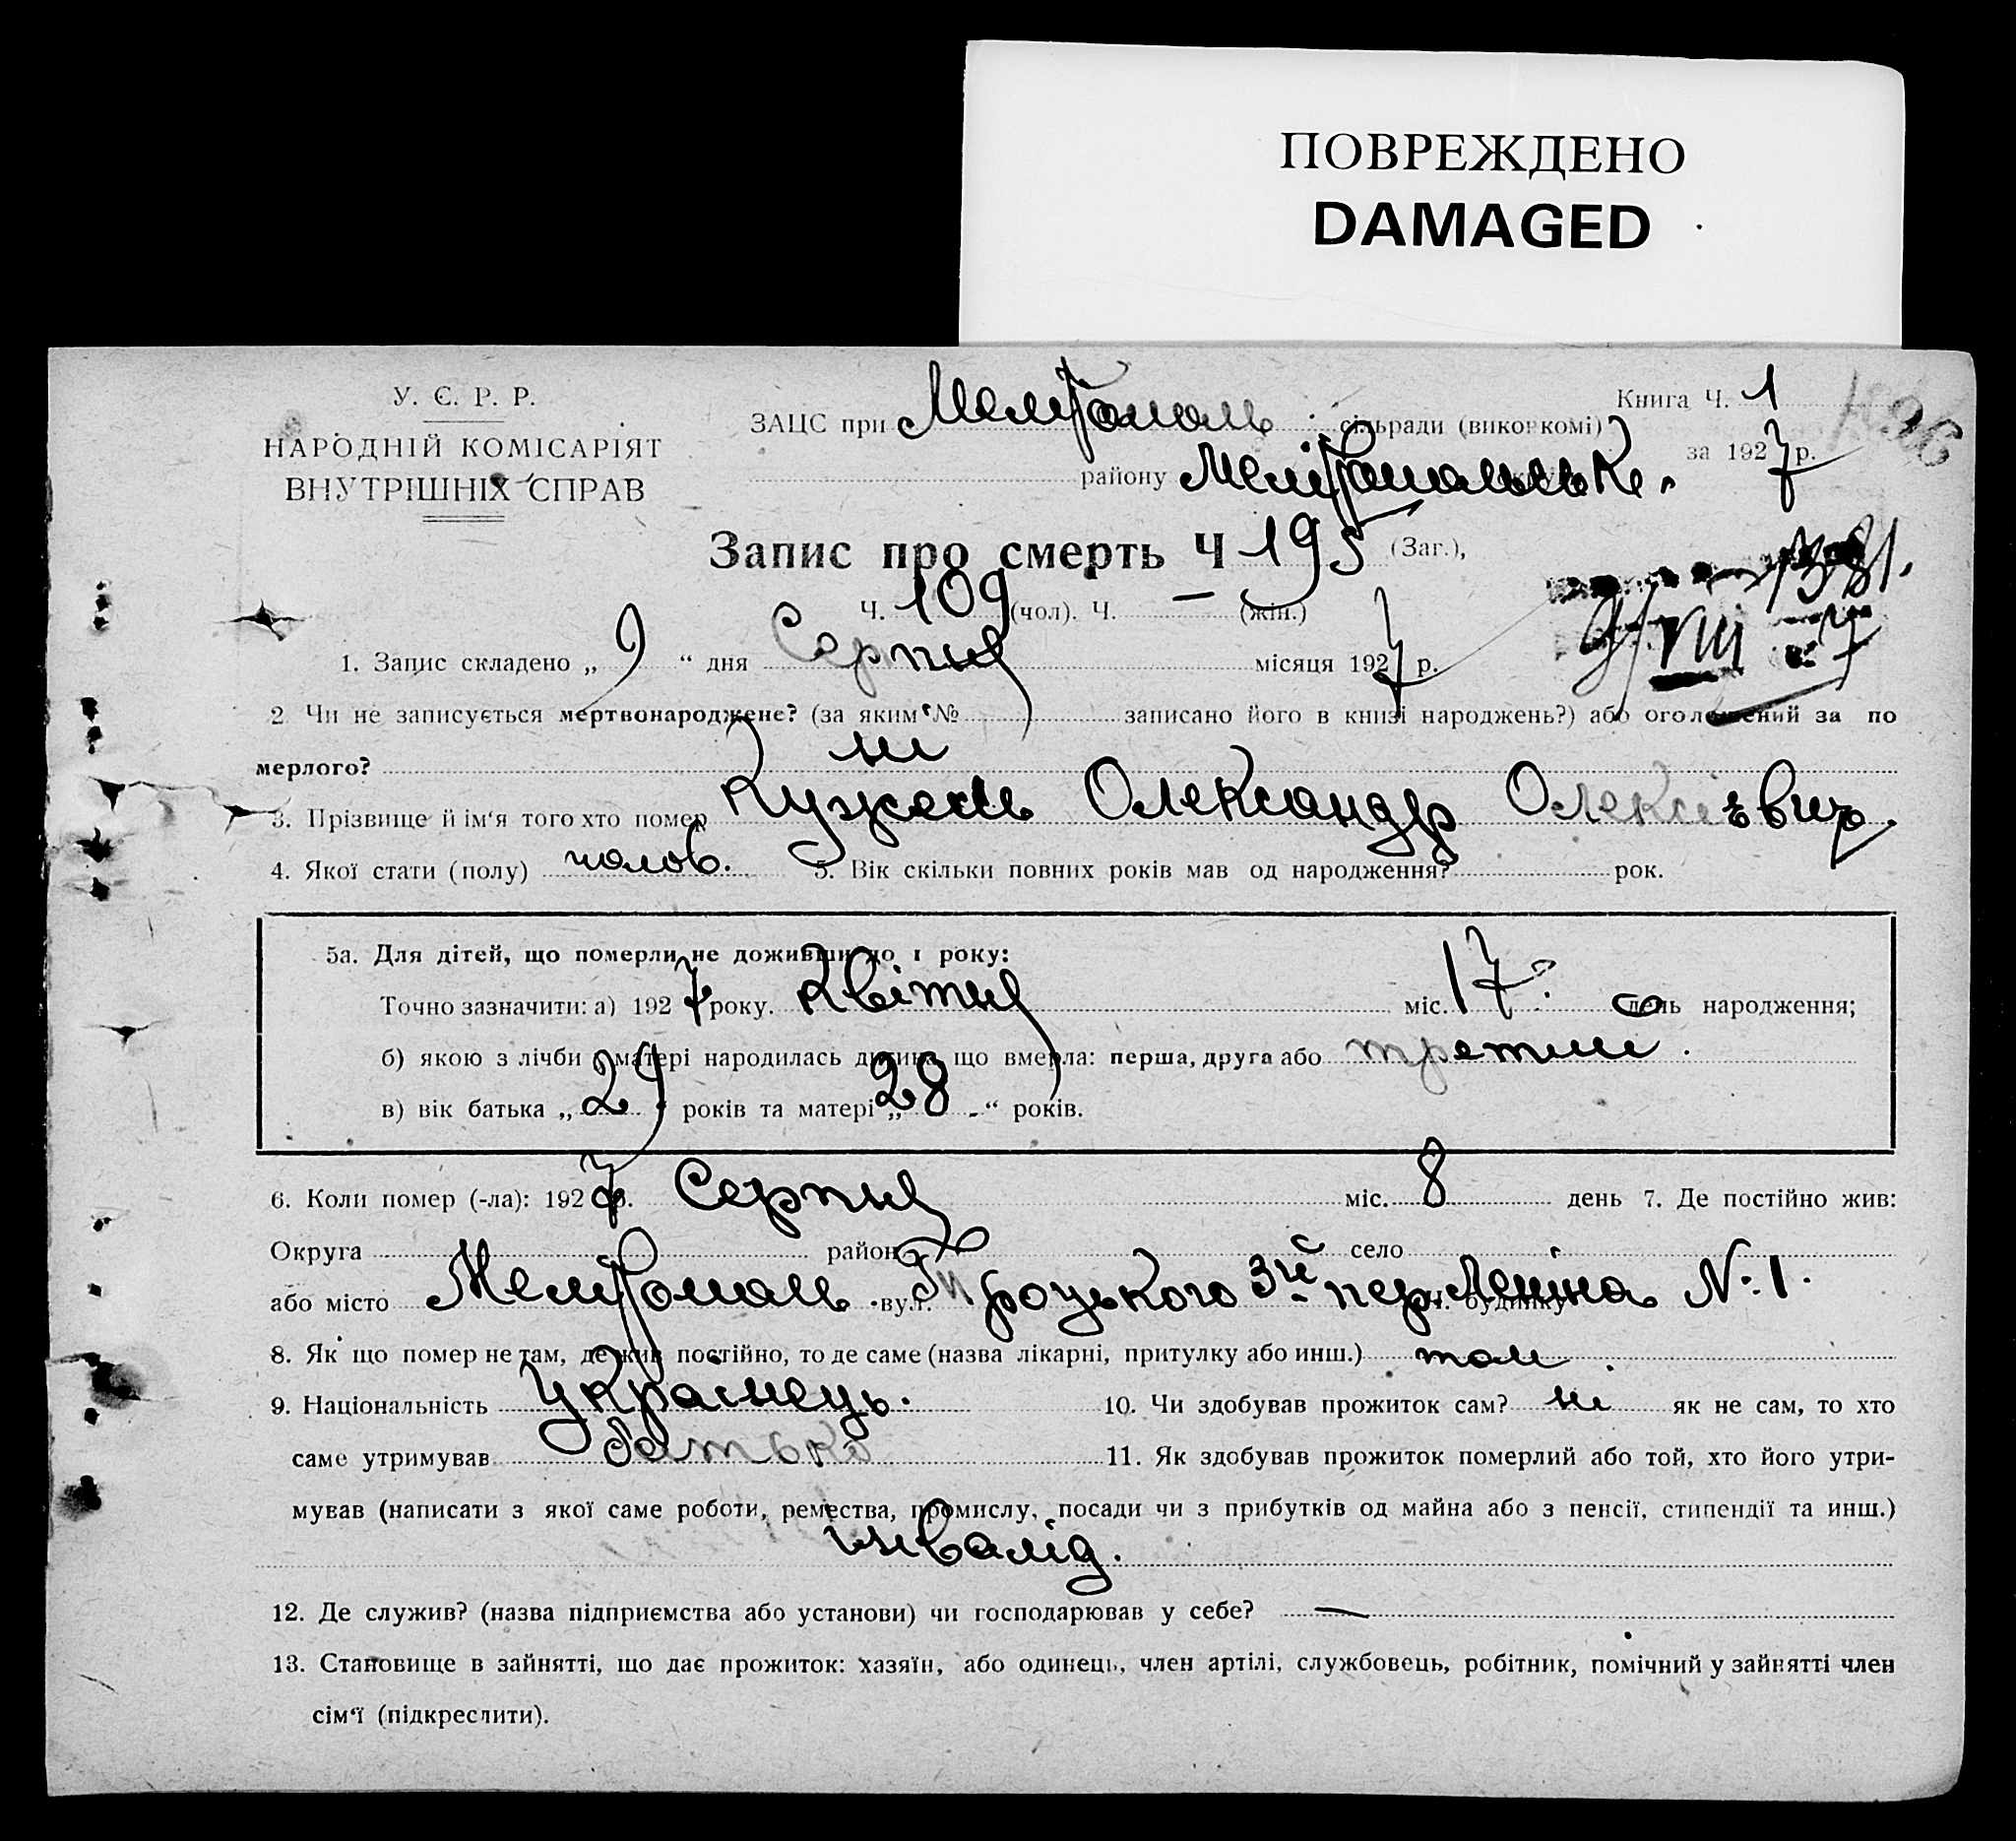 ПОВРЕЖДЕНО
DAMAGED
У. Є. Р. Р.
НАРОДНІЙ КОМІСАРІЯТ
ВНУТРІШНІХ СПРАВ
ЗАЦС при Мелітополь сільради (виконкомі)
району Мелітопольське.
Книга Ч. 1
за 1927 р.
Запис про смерть Ч 195 (Заг.),
Ч. 109 (чол). Ч. — (жін.)
1. Запис складено „ 9 “ дня Серпня місяця 1927 р.
2 Чи не записується мертвонароджене? (за яким №  записано його в книзі народжень?) або оголошений за по
мерлого? ні
3. Прізвище й ім‘я того хто помер Олександр Олексієвич.
4. Якої стати (полу) чолов. 5. Вік скільки повних років мав од народження? рок.
5а. Для дітей, що померли не доживши до 1 року:
Точно зазначити: а) 1927 року. Квітня міс. 17 день народження;
б) якою з лічби у матері народилась дитина що вмерла: перша, друга або
в) вік батька „ 29 “ років та матері „ 28 “ років.
6. Коли помер (-ла): 1927 р. Серпня міс. 8 день 7. Де постійно жив:
Округа район село
або місто Мелітополь вул. Троцького 3й пер Леніна № 1.
8. Як що помер не там, де жив постійно, то де саме (назва лікарні, притулку або инш.) там.
9. Національність Українець. 10. Чи здобував прожиток сам? ні як не сам, то хто
саме утримував батько 11. Як здобував прожиток померлий або той, хто його утри-
мував (написати з якої саме роботи, ремества, промислу, посади чи з прибутків од майна або з пенсії, стипендії та инш.)
інвалід.
12. Де служив? (назва підприємства або установи) чи господарював у себе? —
13. Становище в зайнятті, що дає прожиток: хазяїн, або одинець, член артілі, службовець, робітник, помічний у зайнятті член
сім‘ї (підкреслити).